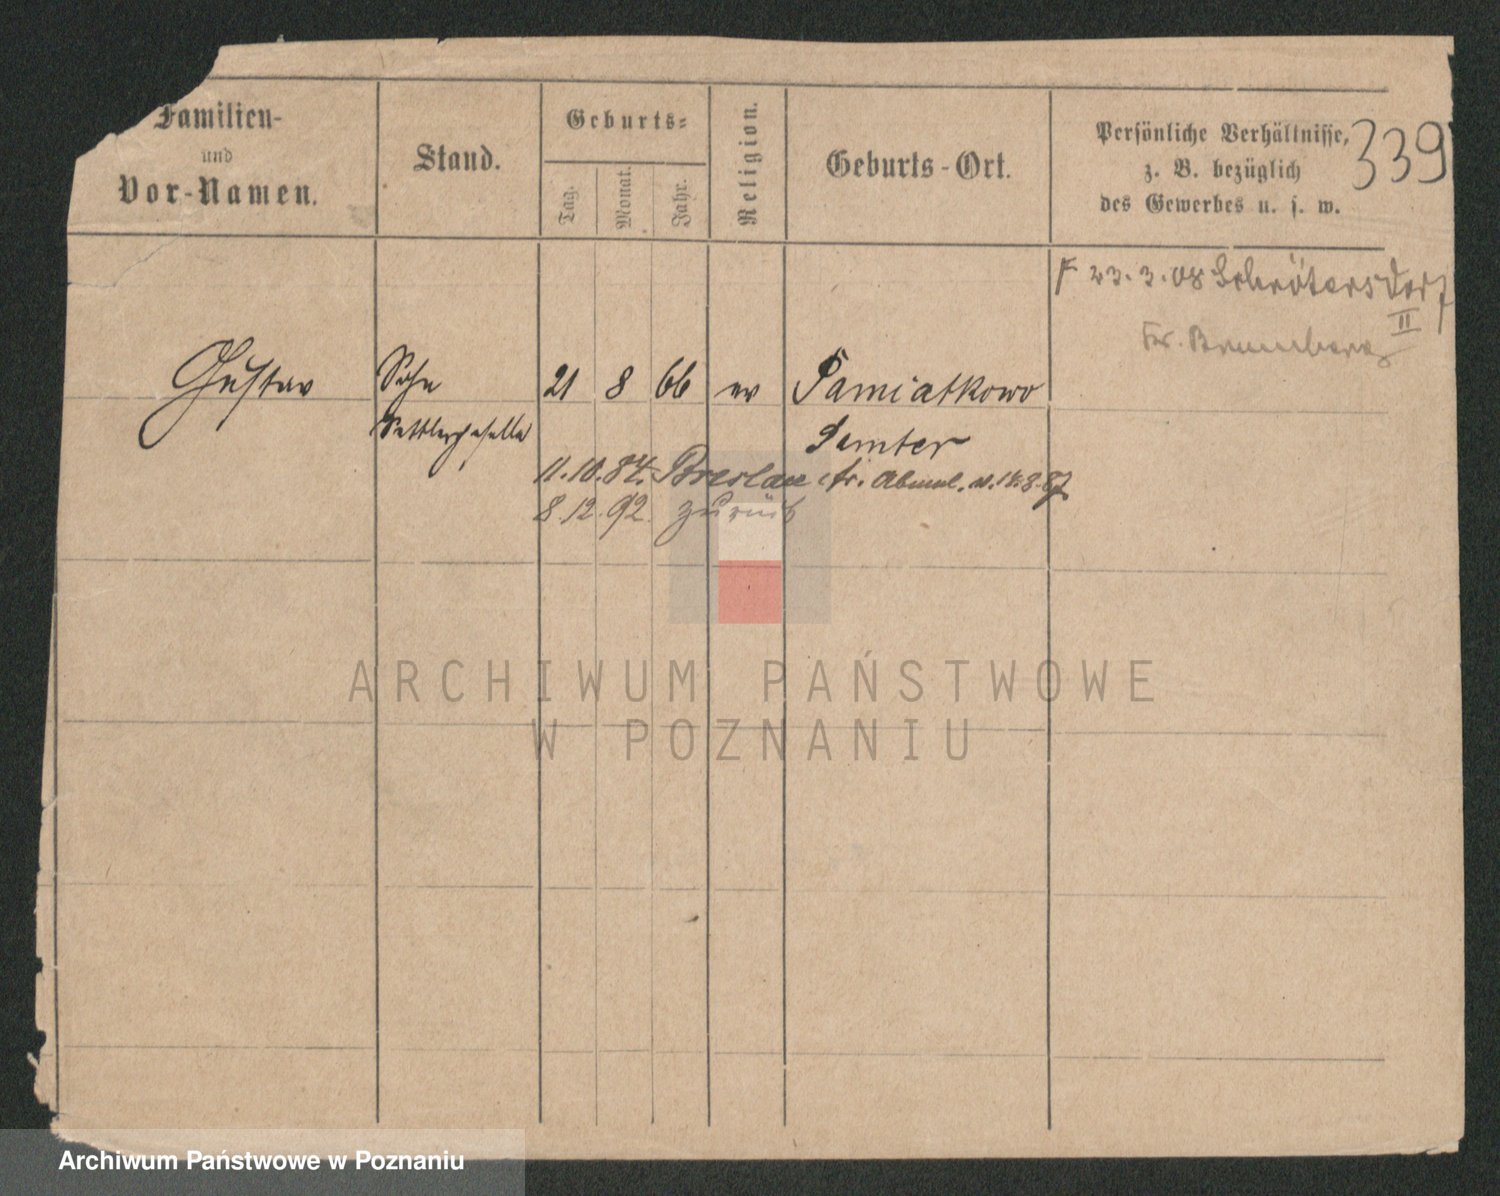 Familien-
und
Vor-Namen.
Stand.
Geburts-
Tag.
Monat.
Jahr.
Religion.
Geburts-Ort.
Persönliche Verhältnisse,
z. B. bezüglich
des Gewerbes u. s. w.
339
23.3.08 Schrötersdorf
II
Kr. Bromberg
Gustav Sohn 21 8 66 ev Pamiatkowo
Sattlergeselle Samter
11.10.84. Breslau Abmel. v. 14.8.87
8.12.92. zurück
ARCHIWUM PAŃSTWOWE
W POZNANIU
Archiwum Państwowe w Poznaniu